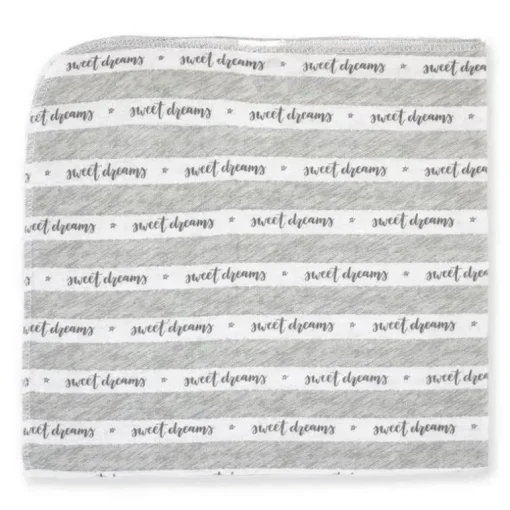 sweet dreams * sweet dreams * sweet dreams * sweet dreams
sweet dreams * sweet dreams * sweet dreams * sweet dreams
sweet dreams * sweet dreams * sweet dreams * sweet dreams
sweet dreams * sweet dreams * sweet dreams * sweet dreams
sweet dreams * sweet dreams * sweet dreams * sweet dreams
sweet dreams * sweet dreams * sweet dreams * sweet dreams
sweet dreams * sweet dreams * sweet dreams * sweet dreams
sweet dreams * sweet dreams * sweet dreams * sweet dreams